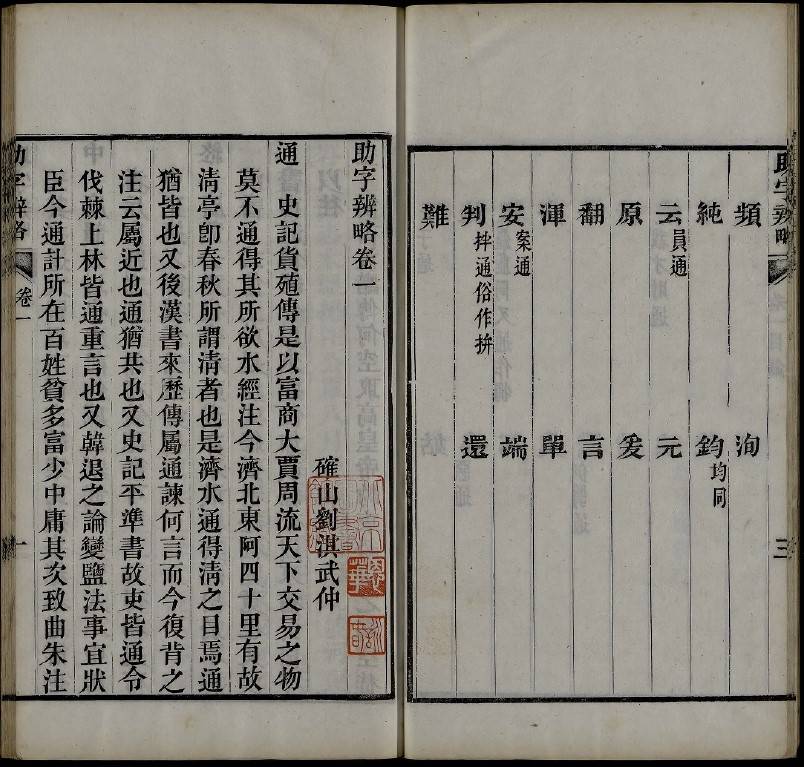 頻 洵
純 鈞均同
云員通 元
原 爰
翻 言
渾 單
安案通 端
判拌通俗作拚 還
難
助字辨略
三
助字辨略卷一
確山劉淇武仲
通 史記貨殖傳是以富商大賈周流天下交易之物
莫不通得其所欲水經注今濟北東阿四十里有故
清亭卽春秋所謂清者也是濟水通得清之目焉通
猶皆也又後漢書來歷傳屬通諫何言而今復背之
注云屬近也通猶共也又史記平準書故吏皆通令
伐棘上林皆通重言也又韓退之論變鹽法事宜狀
臣今通計所在百姓貧多富少中庸其次致曲朱注
助字辨略
卷一
一